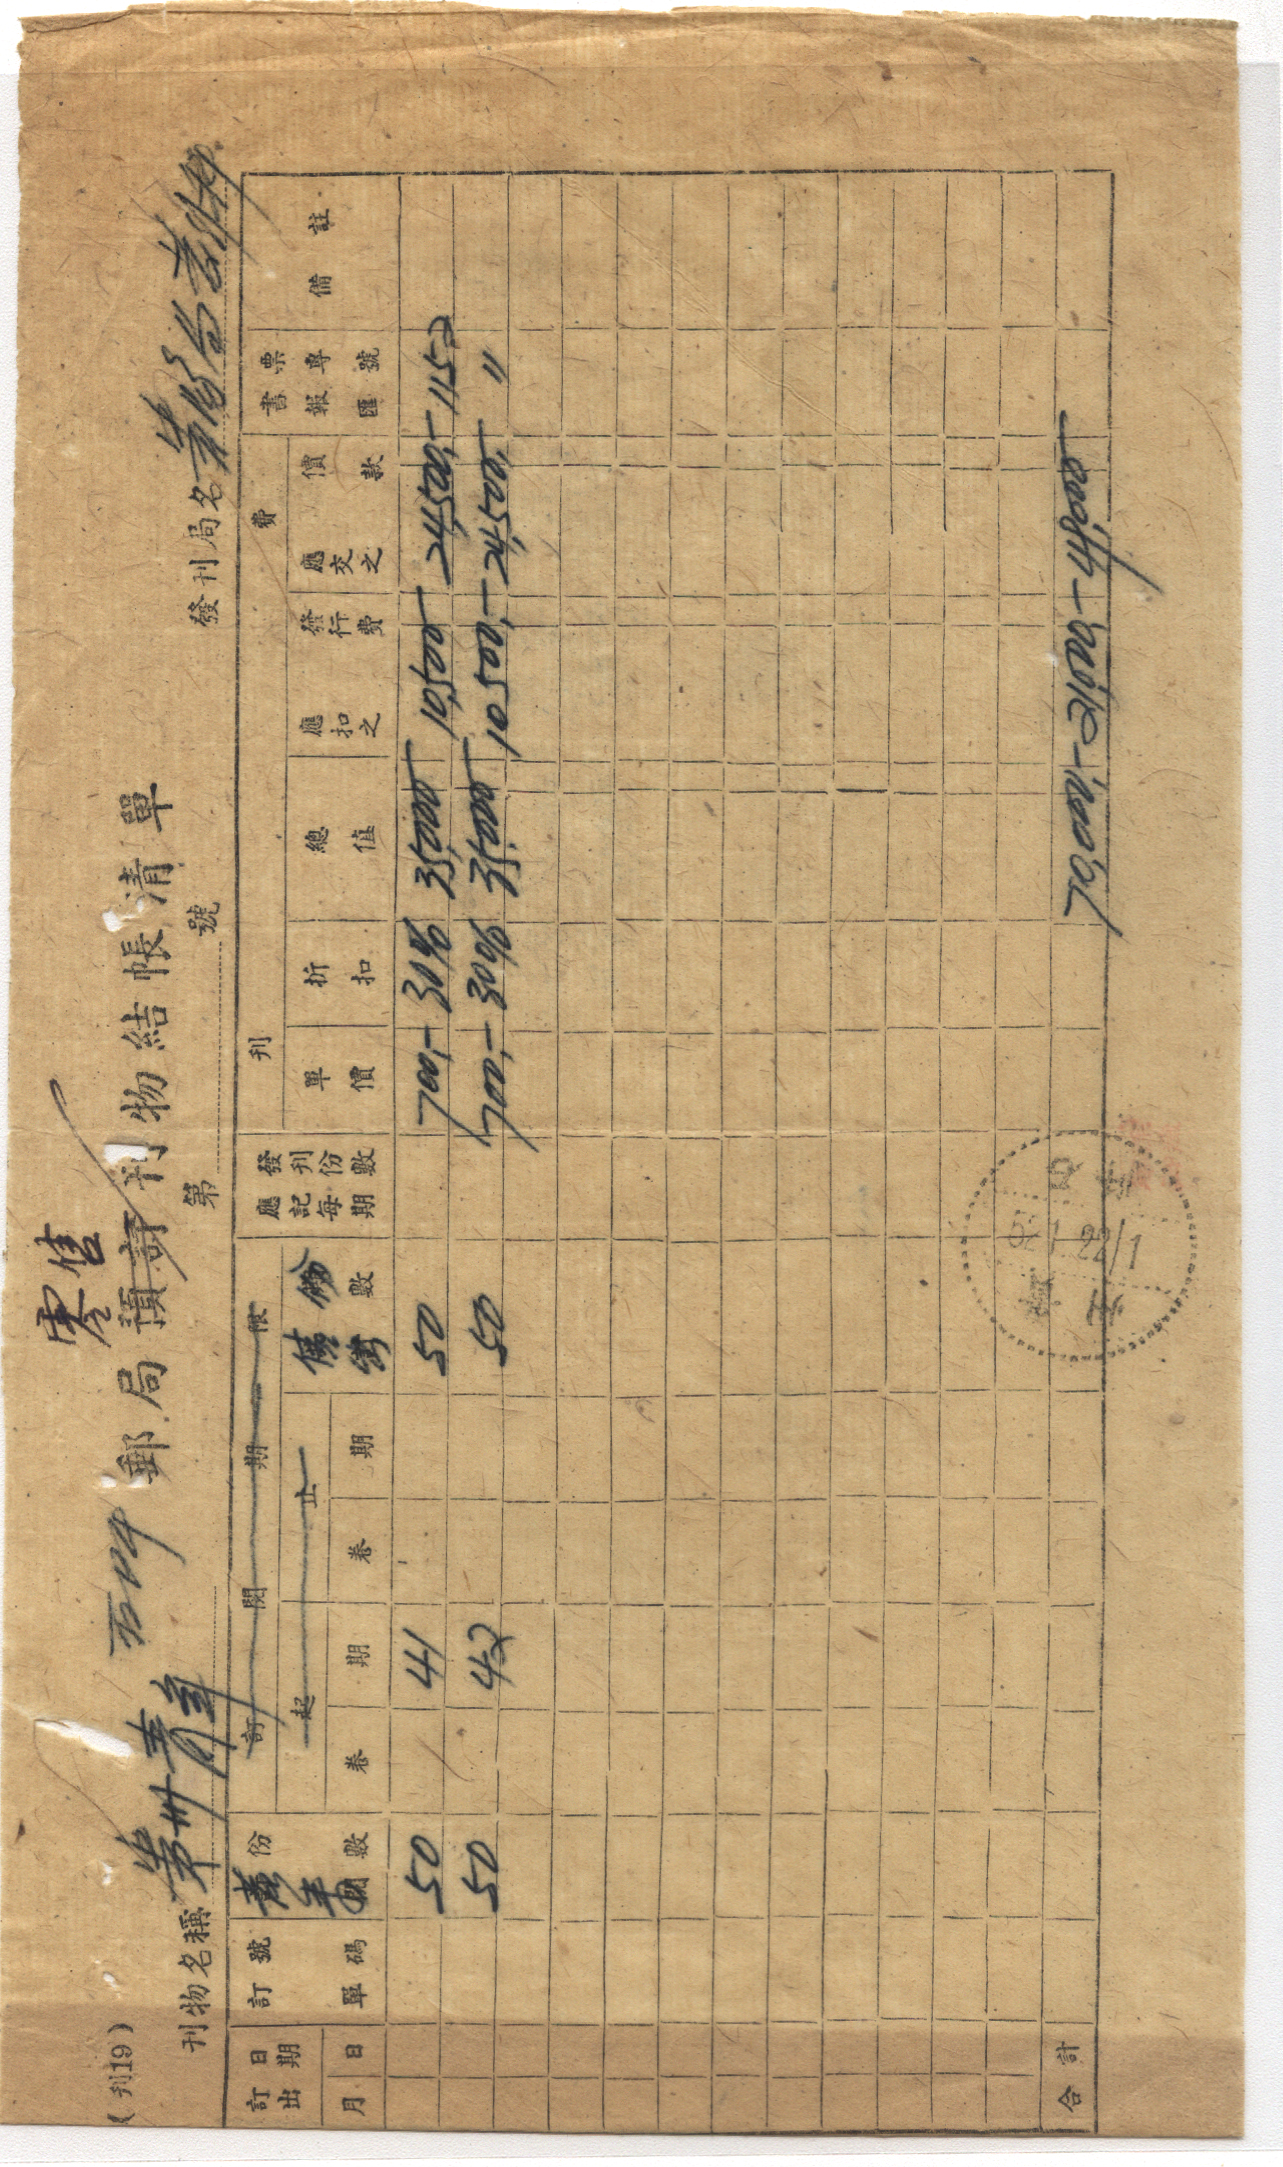 (刊19)
零售
郵局預訂刊物結帳清單
刊物名稱 貴州青年
第 號
發刊局名
訂出日期
月 日
訂單號碼
份數
訂閱期限
起 止
卷 期 卷 期
售 份數
應記每期發刊份數
刊費
單價
折扣
總值
應扣之發行費
應交之價款
匯報專票書號
備註
50 41 50 700.- 30% 35,000- 10,500- 24,500.- 1152
50 42 50 700.- 30% 35,000- 10,500.- 24,500.- "
合計 70,000.- 21,000.- 49,000-
22/1